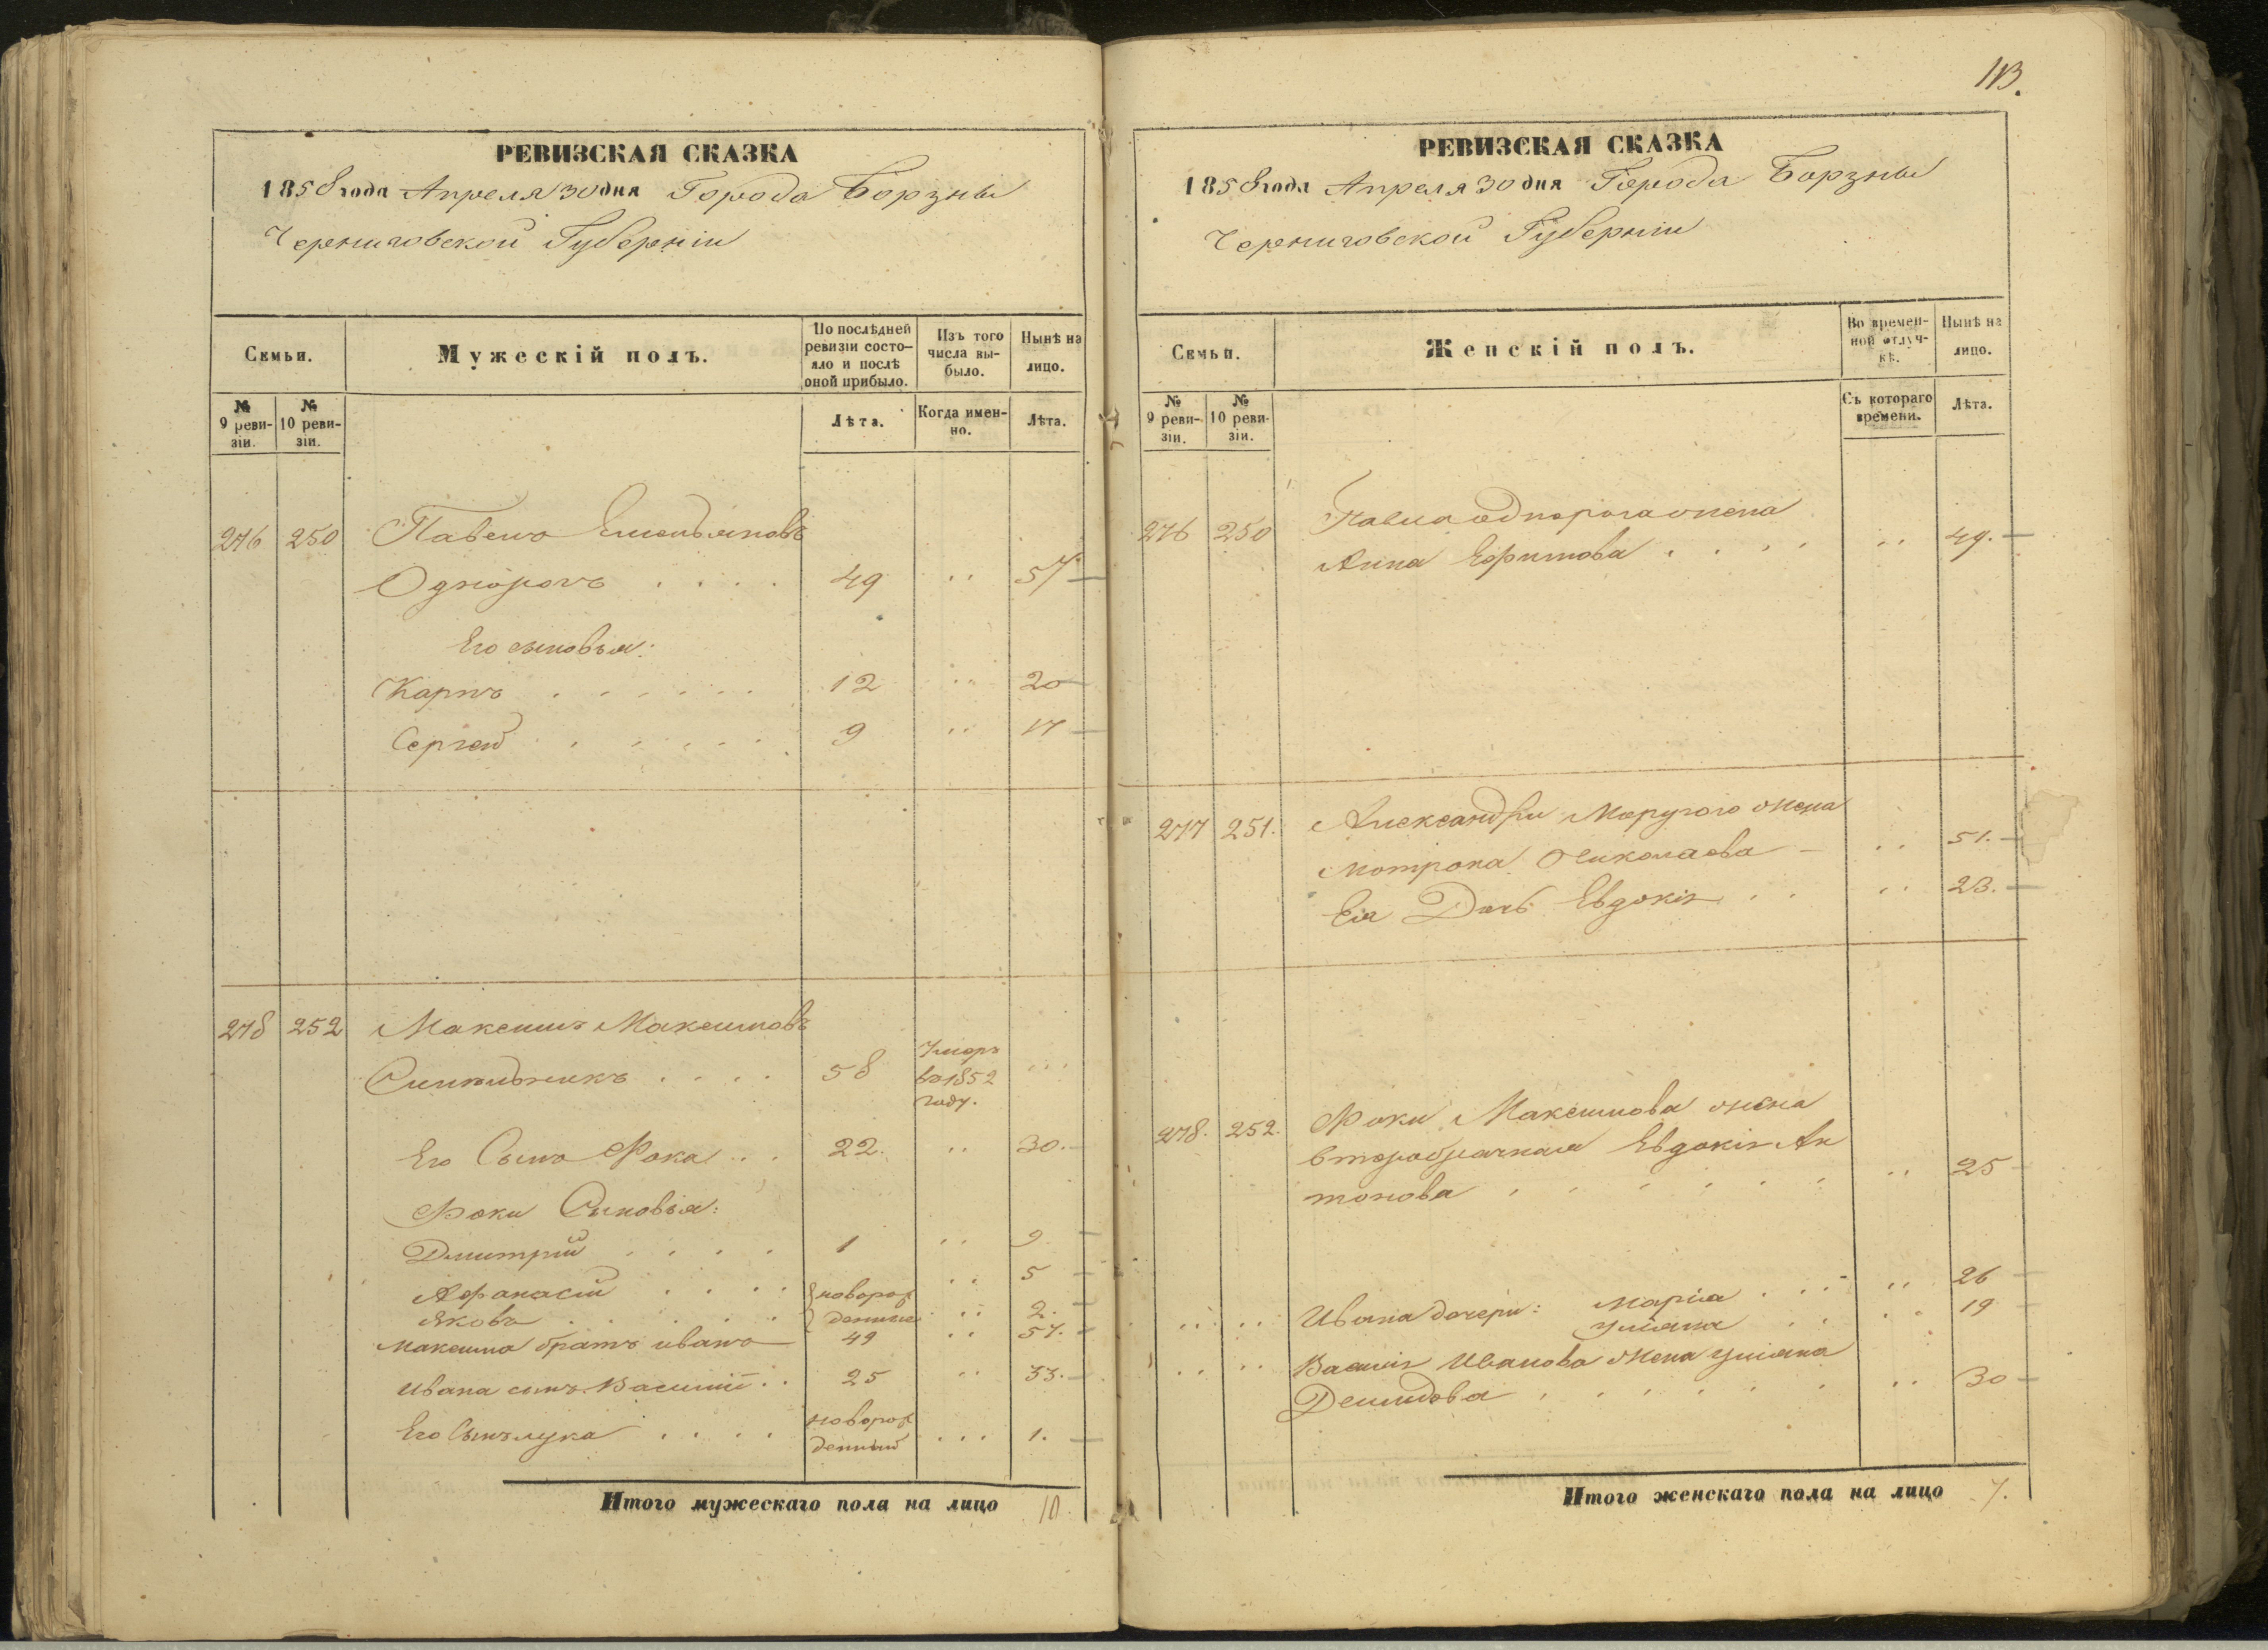 РЕВИЗСКАЯ СКАЗКА
1858 года Апреля 30 дня Города Борзны
Черниговской Губерніи
Семьи.
Мужескій полъ.
По послѣдней
ревизіи состо-
яло и послѣ
оной прибыло.
Изъ того
числа вы-
было.
Нынѣ на
лицо.
№
9 реви-
зіи.
№
10 реви-
зіи.
Лѣта.
Когда имен-
но.
Лѣта.
276 250 Павелъ Емельяновъ
Однорогъ . . . . 49 . . 57
Его сыновья:
Карпъ . . . . . . 12 . . 20
Сергей . . . . . . 9 . . 17
278 252 Максимъ Максимовъ
58 Умеръ
въ 1852
году.
Его Сынъ Фока . . 22. . . 30.
Фоки Сыновья:
Дмитрій . . . . 1 . . 9
Афанасій . . . . новорож . . 5
Яковъ . . . . . денные . . 2.
Максима братъ иванъ 49 . . 57.
Ивана сынъ Василій . . 25 . . 33.
Его Сынъ лука . . . . новорож
денный . . . 1.
Итого мужескаго пола на лицо 10
113.
РЕВИЗСКАЯ СКАЗКА
1858 года Апреля 30 дня Города Борзны
Черниговской Губерніи
Семьи.
Женскій полъ.
Во времен-
ной отлуч-
кѣ.
Нынѣ на
лицо.
№
9 реви-
зіи.
№
10 реви-
зіи.
Съ котораго
времени.
Лѣта.
276 250 Павла однорога жена
Анна Ефимова . . . . . . 49.
277 251. Александры Моругого жена
Мотрона Николаева . . 51.
Ея Дочь Евдокія . . . . 23.
278. 252. Фоки Максимова жена
второбрачная Евдокія Ан
тонова . . . . . . . . 25
. . . . Ивана дочери: Марія . . . . . 26
Уліяна . . . . 19
. . . . Василія Иванова жена Уліяна
Демидова . . . . . . . . 30
Итого женскаго пола на лицо 7.